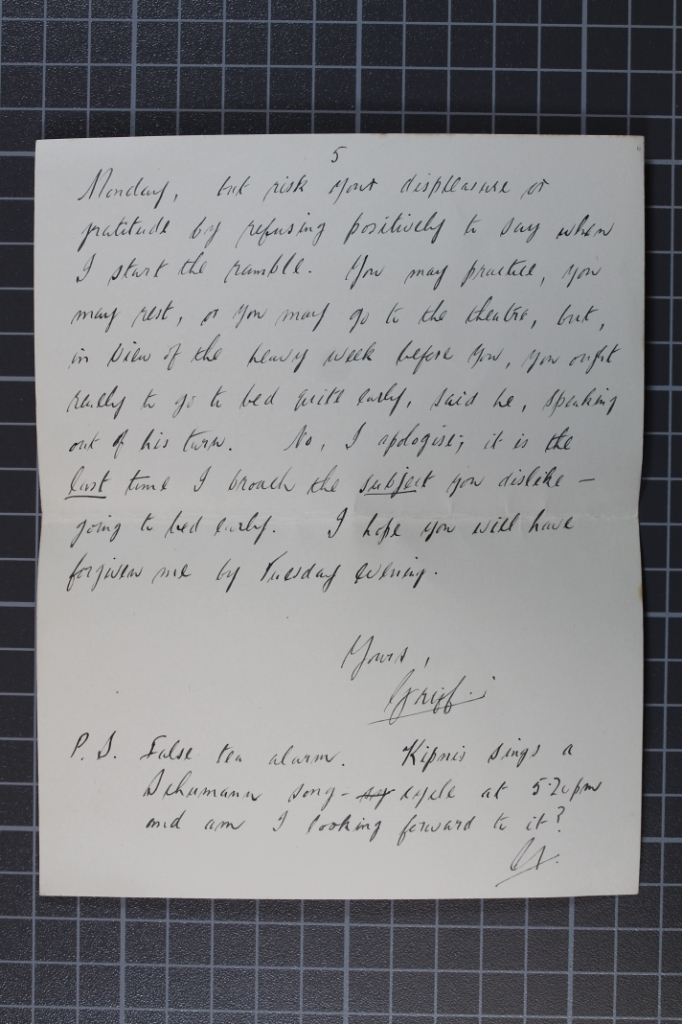 5
Monday, but risk your displeasure or
gratitude by refusing positively to say when
I start the ramble. You may practice, you
may rest, or you may go to the theatre, but,
in view of the heavy week before you, you ought
really to go to bed quite early, said he, speaking
out of his turn. No, I apologise; it is the
last time I broach the subject you dislike –
going to bed early. I hope you will have
forgiven me by Tuesday evening.
Yours,
Griff.
P.S. False tea alarm. Kipnis sings a
Schumann song- cycle at 5.20pm
and am I looking forward to it?
G.